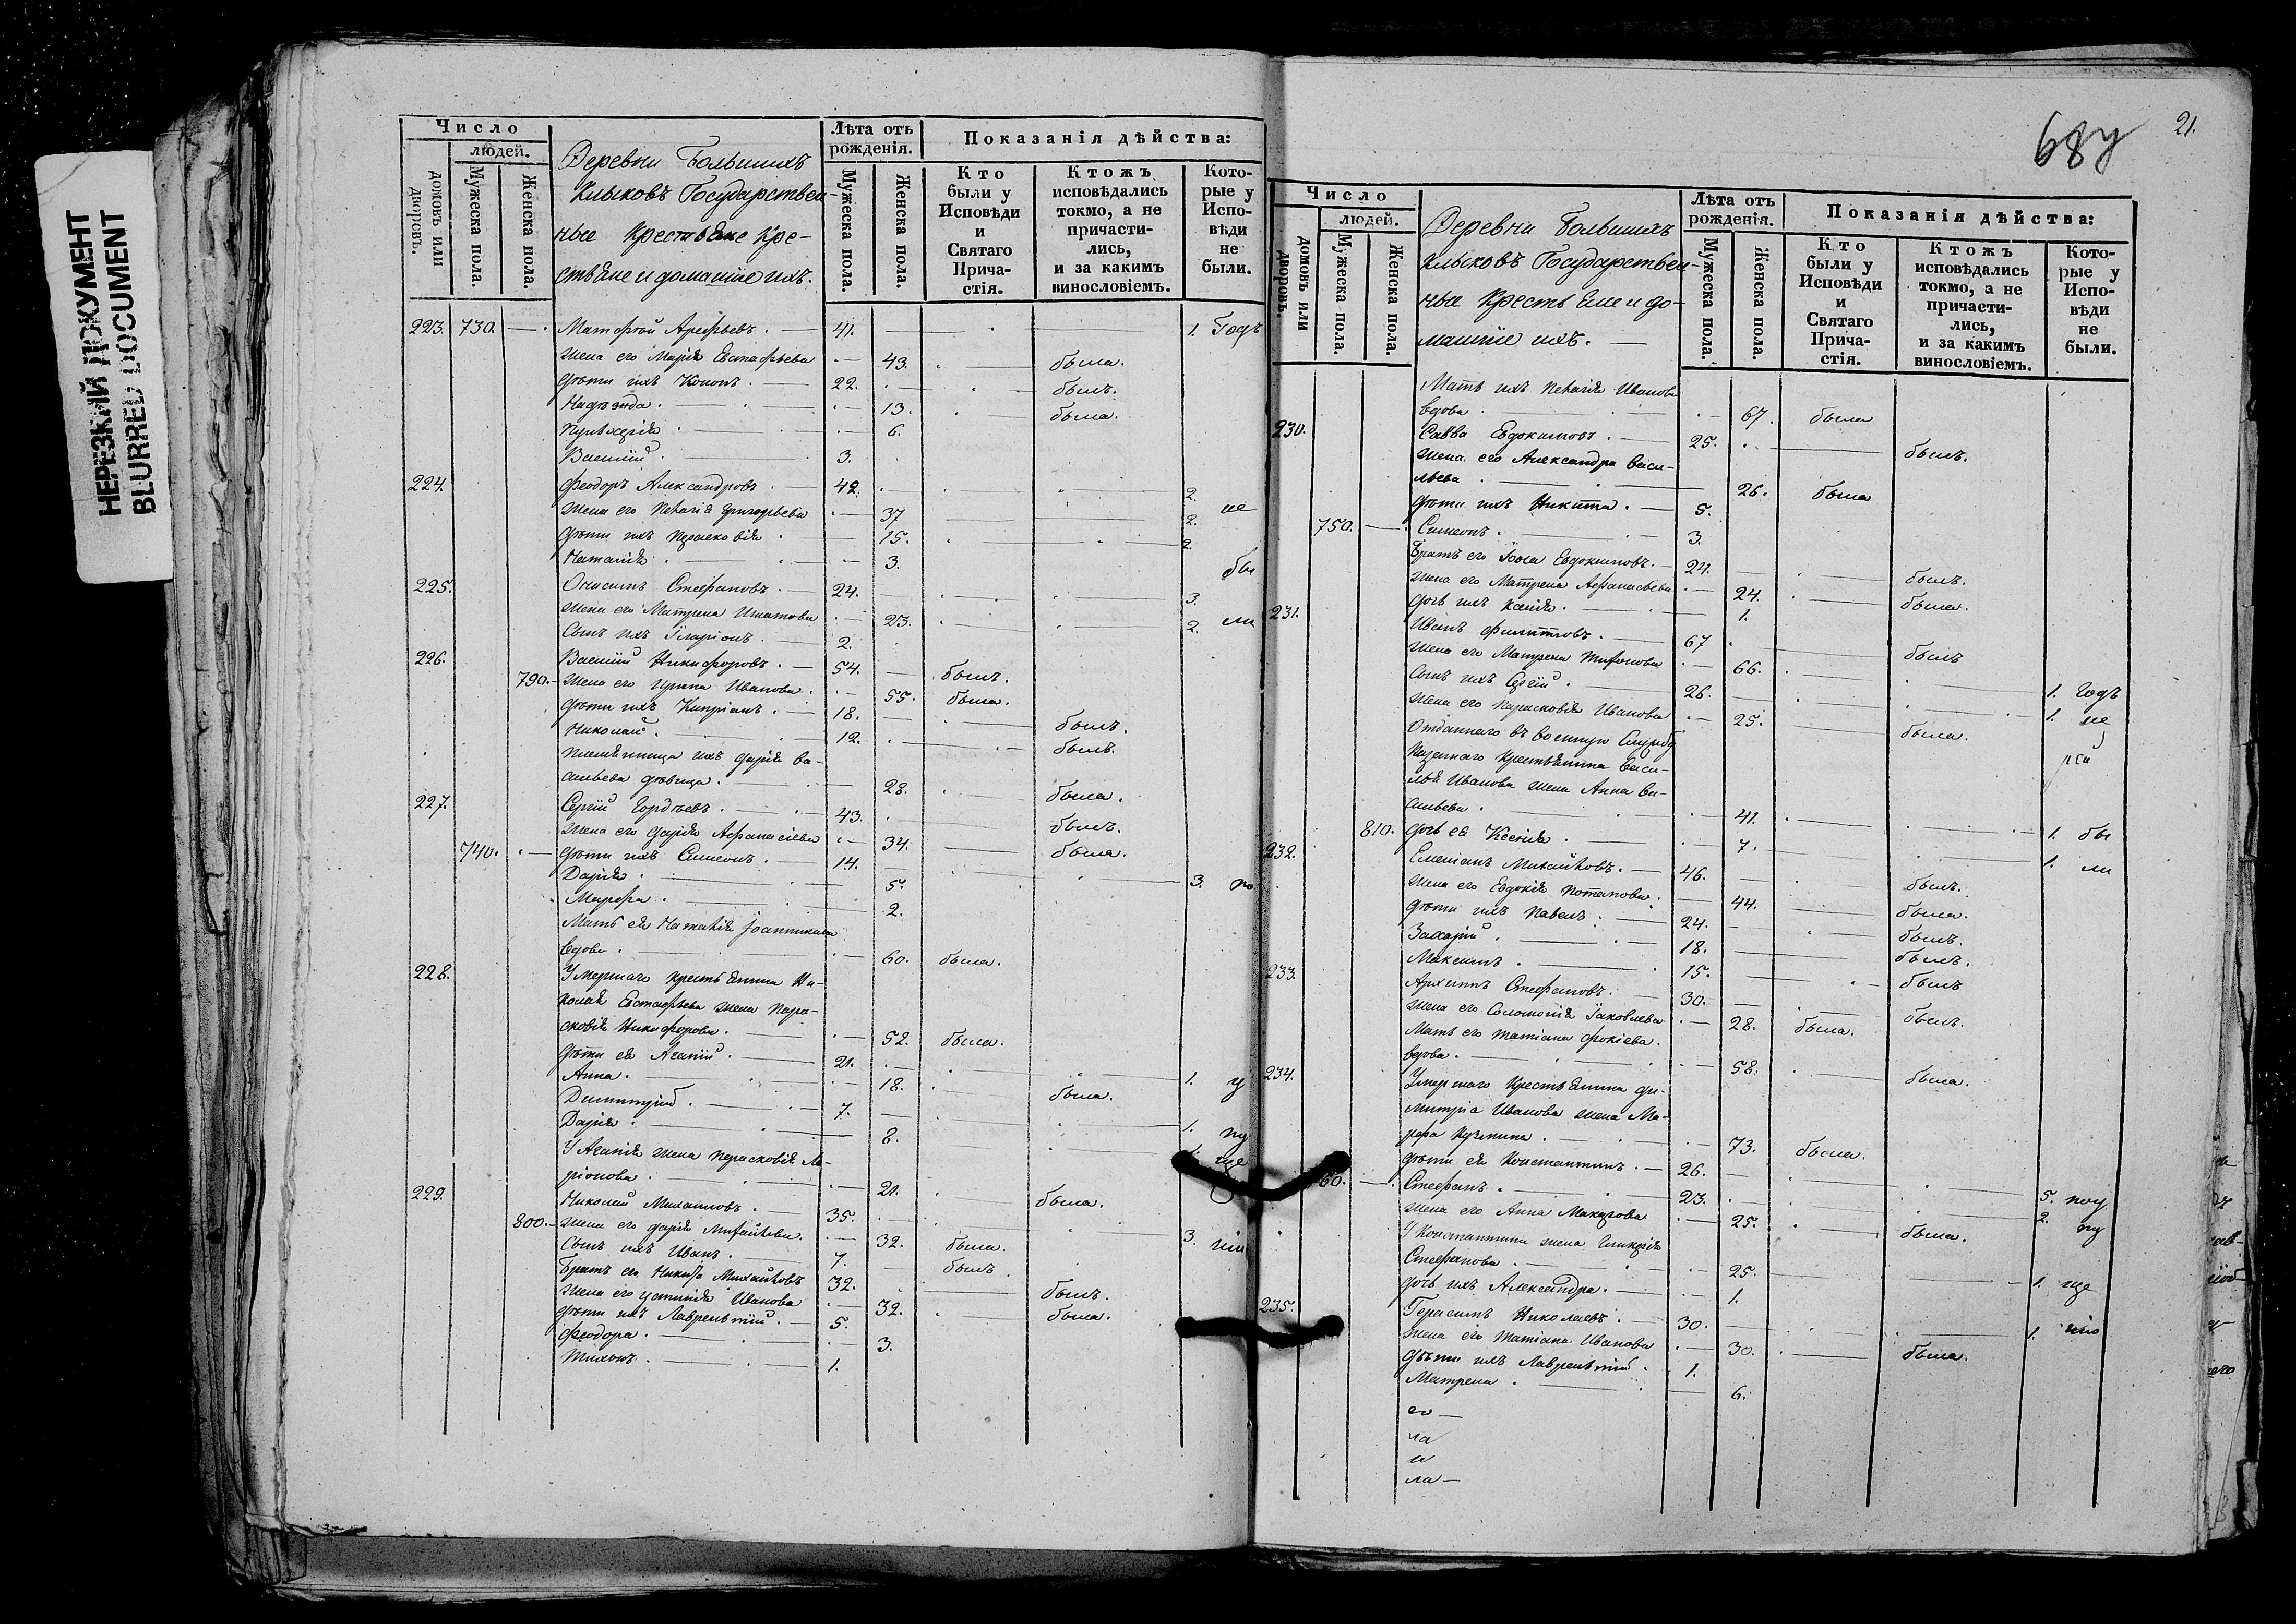 НЕРЕЗКИЙ ДОКУМЕНТ
BLURRED DOCUMENT
Число
людей.
домовъ или дворовъ.
Мужеска пола.
Женска пола.
Деревни Большихъ
Клыковъ Государствен-
ные Крестьяне Кре-
стьяне и домашніе ихъ.
Лѣта отъ рожденія.
Мужеска пола.
Женска пола.
Показанія дѣйства:
Кто были у Исповѣди и Святаго Прича-стія.
Ктожъ исповѣдались токмо, а не причасти-лись, и за какимъ винословіемъ.
Кото-рые у Испо-вѣди не были.
223. 730. — Матфей Арефьевъ. — 41. 1. Годъ
жена его Марія Евстафьева — 43. была.
дѣти ихъ Кононъ. — 22. былъ.
Надѣжда. — 13. была.
Пульхерія — 6.
Василій. — 3.
224. Феодоръ Александровъ. — 42. 2.
жена его Наталія Григорьева — 37 2. не
дѣти ихъ Парасковія — 15. 2.
Наталія. — 3. бы
225. Онисимъ Стефановъ. — 24. 3.
жена его Матрена Игнатова — 23. 2. ли
Сынъ ихъ Іларіонъ. — 2.
226. Василій Никифоровъ. — 54. былъ.
790. — жена его Ирина Иванова. — 55. была.
дѣти ихъ Кипріанъ. — 18. былъ.
Николай. — 12. былъ.
племянница ихъ Дарія Ва-
сильева дѣвица. — 28. была.
227. Сергій Гордѣевъ. — 43. былъ.
жена его Дарія Афанасіева — 34. была.
740. — дѣти ихъ Симеонъ. — 14. 3. по
Дарія. — 5.
Марфа. — 2.
Мать ея Наталія Іоанникіева
вдова. — 60. была.
228. Умершаго крестьянина Ни-
колая Евстафьева жена Пара-
сковія Никифорова. — 52. была.
дѣти ея Агапій. — 21. 1. у
Анна. — 18. была.
Димитрій. — 7. 1. пу
Дарія. — 8. ще
У Агапія жена Парасковія Ла-
ріонова. — 21. была.
229. Николай Михайловъ. — 35. 3. нію
800. — жена его Дарія Михайлова. — 32. была.
Сынъ ихъ Иванъ. — 7. былъ
Братъ его Никита Михайловъ 32. былъ.
жена его Устинія Иванова — 32. была.
дѣти ихъ Лаврентій. — 5.
Феодора. — 3.
Тихонъ. — 1.
21.
Число
людей.
домовъ или дворовъ.
Мужеска пола.
Женска пола.
Деревни Большихъ
Клыковъ Государствен-
ные Крестьяне и до-
машніе ихъ. —
Лѣта отъ рожденія.
Мужеска пола.
Женска пола.
Показанія дѣйства:
Кто были у Исповѣди и Святаго Прича-стія.
Ктожъ исповѣдались токмо, а не причасти-лись, и за какимъ винословіемъ.
Кото-рые у Испо-вѣди не были.
Мать ихъ Наталія Иванова
вдова. — 67. была
230. Савва Евдокимовъ. — 25. былъ.
жена его Александра Васи-
льева. — 26. была
дѣти ихъ Никита. — 5.
750. — Симеонъ. — 3.
Братъ его Іона Евдокимовъ. — 24. былъ.
жена его Матрена Афанасьева — 24. была.
дочь ихъ Ксенія. — 1.
231. Иванъ Филиповъ. — 67 былъ
жена его Матрена Тифонова — 66.
Сынъ ихъ Сергій. — 26. 1. Годъ
жена его Парасковія Иванова — 25. была. 1. не
Отданнаго въ военную Службу
Казеннаго Крестьянина Васи-
лья Иванова жена Анна Ва-
сильева. — 41. 1. бы
810. дочь ея Ксенія. — 7. 1. ли
232. Емеліанъ Михайловъ. — 46. былъ.
жена его Евдокія Потапова. — 44. была.
дѣти ихъ Павелъ. — 24. былъ.
Захарій. — 18. былъ.
Максимъ. — 15. былъ
233. Архипъ Стефановъ. — 30. былъ.
жена его Соломонія Іаковлева — 28. была.
Мать его Татіана Фокіева.
вдова. — 58. была.
234. Умершаго Крестьянина Ди-
митріа Иванова жена Ма-
рфа Кузмина. — 73. была.
дѣти ея Константинъ. — 26. 5. поу
60. — Стефанъ. — 23. 2. пу
жена его Анна Макарова — 25. была.
У Константина жена Гликерія
Стефанова. — 25. 1. ще
дочь ихъ Александра. — 1.
235. Герасимъ Николаевъ. — 30. 1. нію
жена его Татіана Иванова — 30. была.
дѣти ихъ Лаврентій. — 1.
Матрена. — 6.
го —
ла
и
ла —